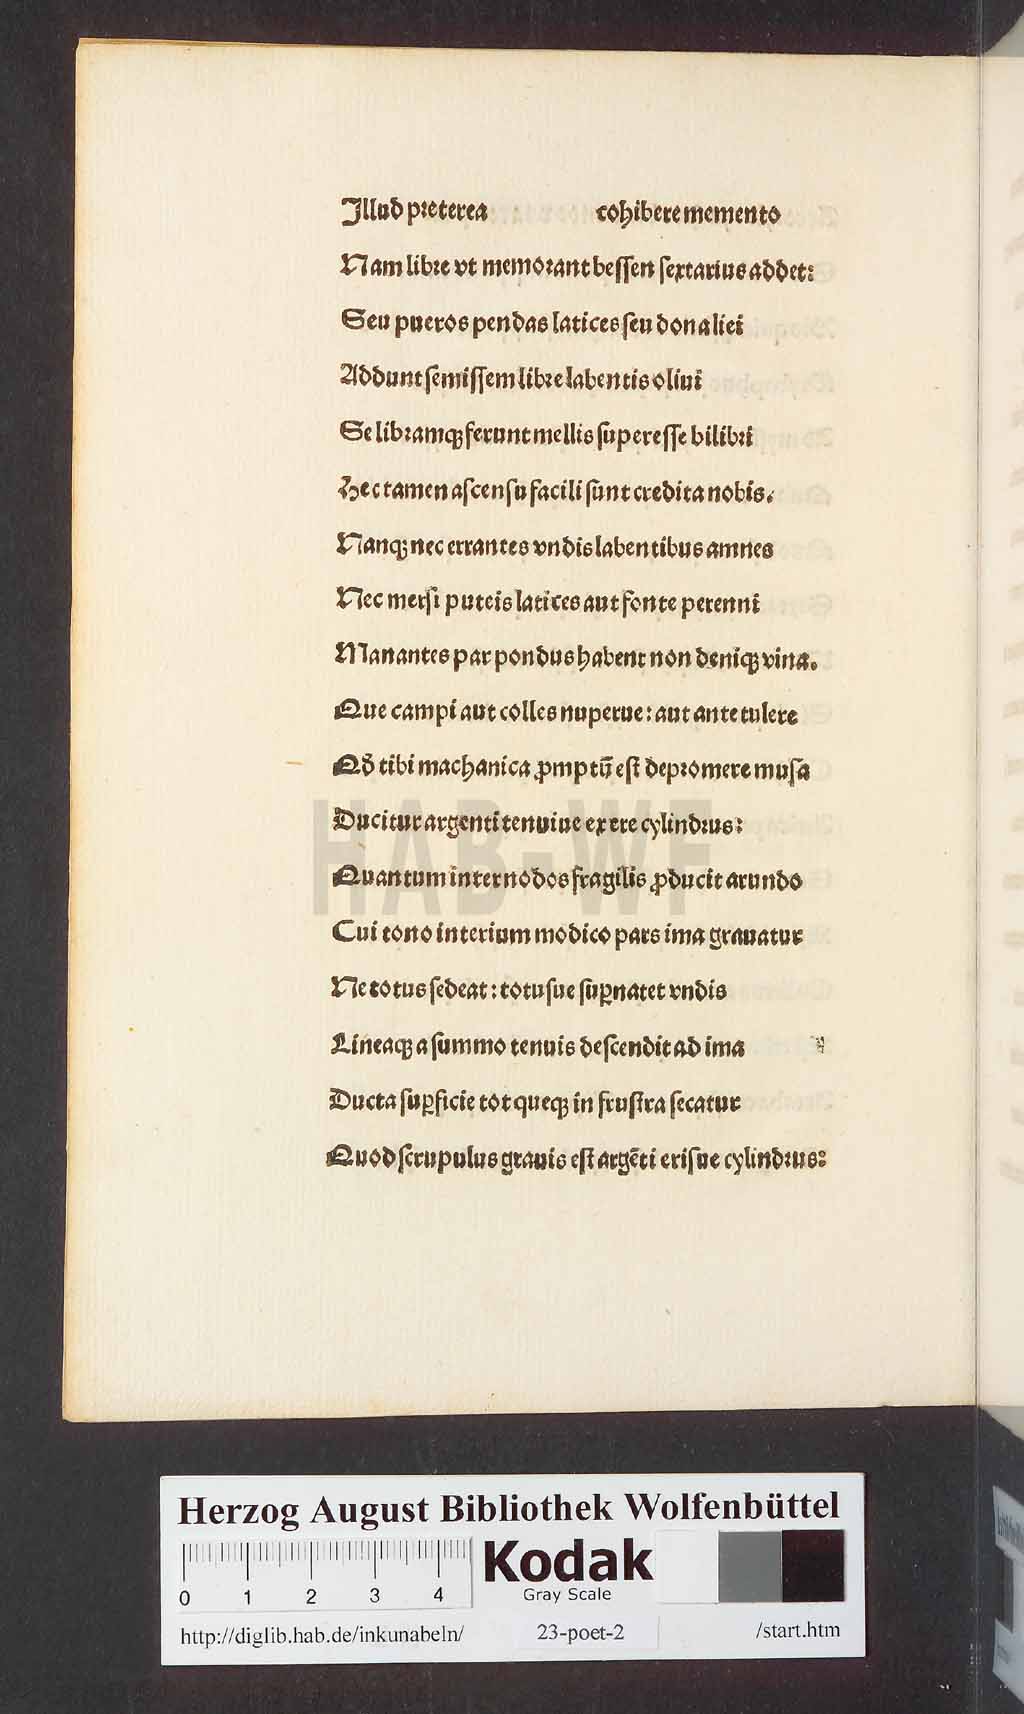 Illud preterea cohibere memento
Nam libre vt memorant bessen sextarius addet:
Seu pueros pendas latices seu dona liei
Addunt semissem libre labentis oliui
Se libramqꝫ ferunt mellis superesse bilibri
Hec tamen ascensu facili sunt credita nobis.
Nanqꝫ nec errantes vndis labentibus amnes
Nec mersi puteis latices aut fonte perenni
Manantes par pondus habent non deniqꝫ vina.
Que campi aut colles nuperue: aut ante tulere
Qð tibi machanica ꝓmptū est depromere musa
Ducitur argenti tenuiue ex ere cylindrus:
Quantum internodos fragilis ꝓducit arundo
Cui cono interium modico pars ima grauatur
Ne totus sedeat: totusue suꝑnatet vndis
Lineaqꝫ a summo tenuis descendit ad ima
Ducta suꝑficie tot queqꝫ in frustra secatur
Quod scrupulus grauis est argēti erisue cylindrus:
HAB-WF
Herzog August Bibliothek Wolfenbüttel
0 1 2 3 4
Kodak
Gray Scale
http://diglib.hab.de/inkunabeln/ 23-poet-2 /start.htm